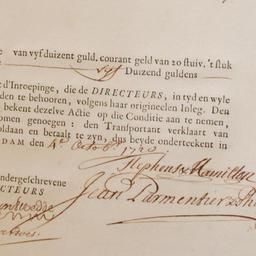 van vyf duizent guld. courant geld van 20 stuiv. 't stuk
vyf Duizend guldens
t d'Inroepinge, die de DIRECTEURS, in tyd en wyle
den te behooren, volgens haar origineelen Inleg. Den
bekent dezelve Actie op die Conditie aan te nemen,
omen genoegen: den Transportant verklaart van
oldaan en betaalt te zyn, dus beyde onderteekent in
DAM den 4e Octob. 1720
ndergeschrevene
CTEURS
Jean Parmentier